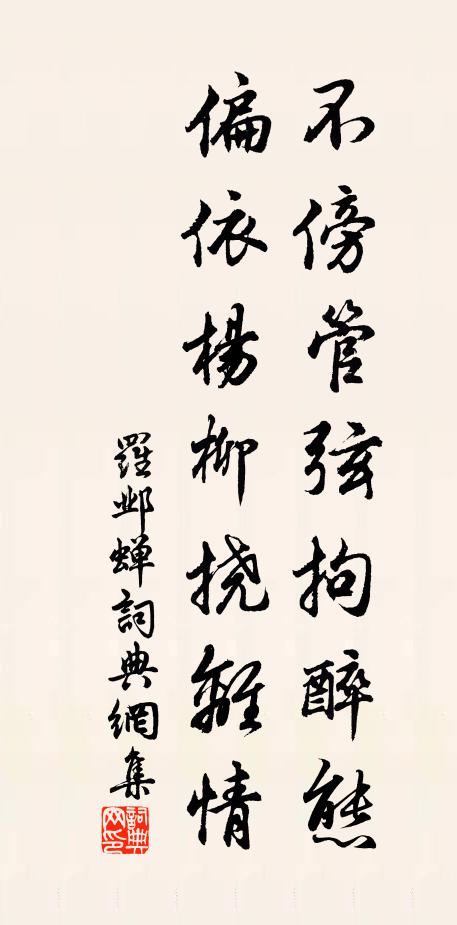 不傍管弦拘醉態
偏依楊柳撓離情
羅邺蝉詞典網集
詞典網印